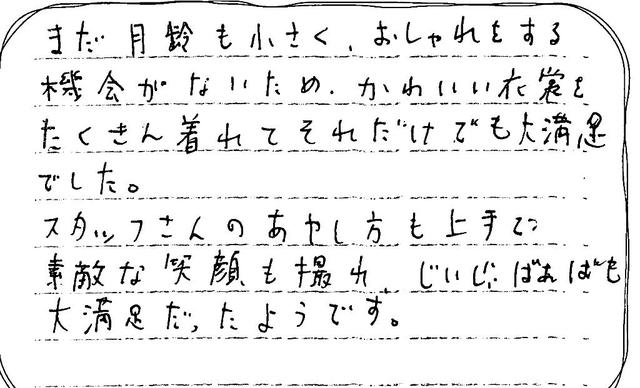 まだ月齢も小さく、おしゃれをする
機会がないため、かわいい衣裳を
たくさん着れてそれだけでも大満足
でした。
スタッフさんのあやし方も上手で
素敵な笑顔も撮れ、じいじ、ばあばも
大満足だったようです。